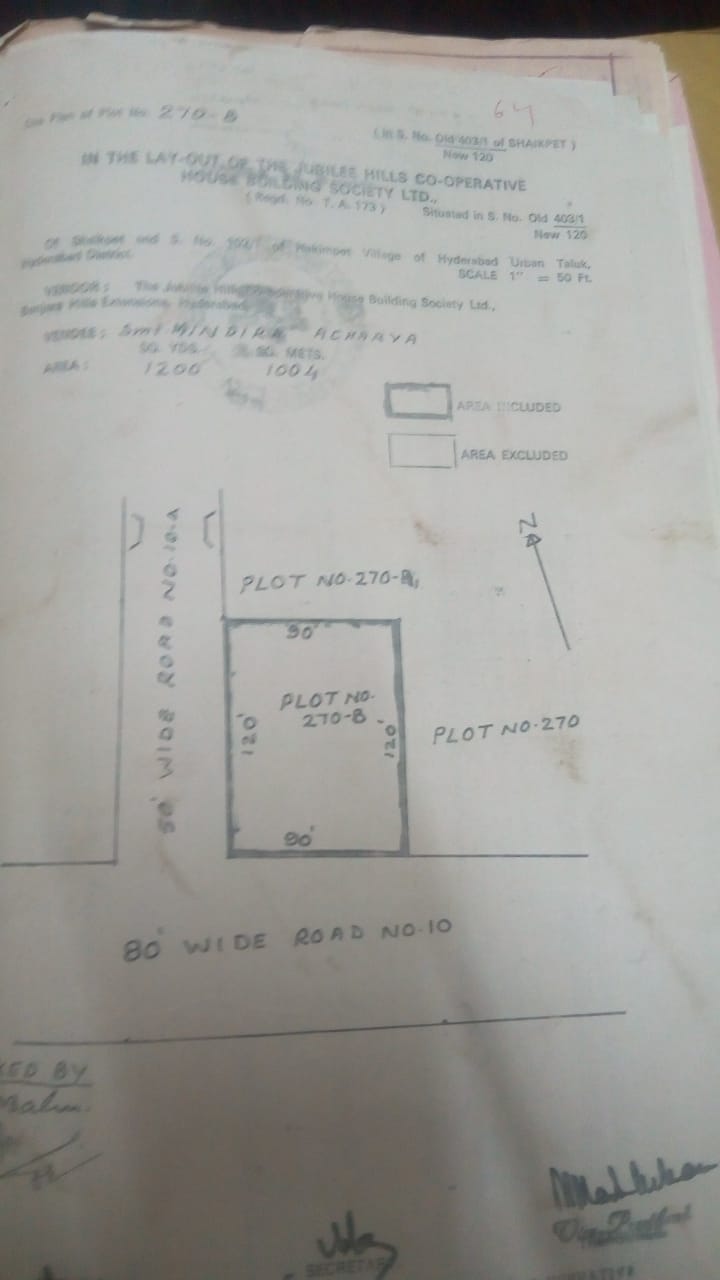 Plan of Plot No. 270-B
64
(In S. No. Old 403/1 of SHAIKPET)
New 120
IN THE LAY-OUT OF THE JUBILEE HILLS CO-OPERATIVE
HOUSE BUILDING SOCIETY LTD.,
(Regd. No. T. A. 173)
Situated in S. No. Old 403/1
New 120
Of Shaikpet and S. No. 102/1 of Hakimpet Village of Hyderabad Urban Taluk,
Hyderabad District.
SCALE 1" = 50 Ft.
VENDOR: The Jubilee Hills House Building Society Ltd.,
Banjara Hills Extensions, Hyderabad
VENDEE: Smt ACHARYA
SQ. YDS. SQ. METS.
AREA: 1200 1004
AREA INCLUDED
AREA EXCLUDED
N
50' WIDE ROAD NO.10-A
PLOT NO.270-
90'
PLOT NO.
270-B
120'
120'
90'
PLOT NO.270
80' WIDE ROAD NO.10
KED BY
SECRETARY